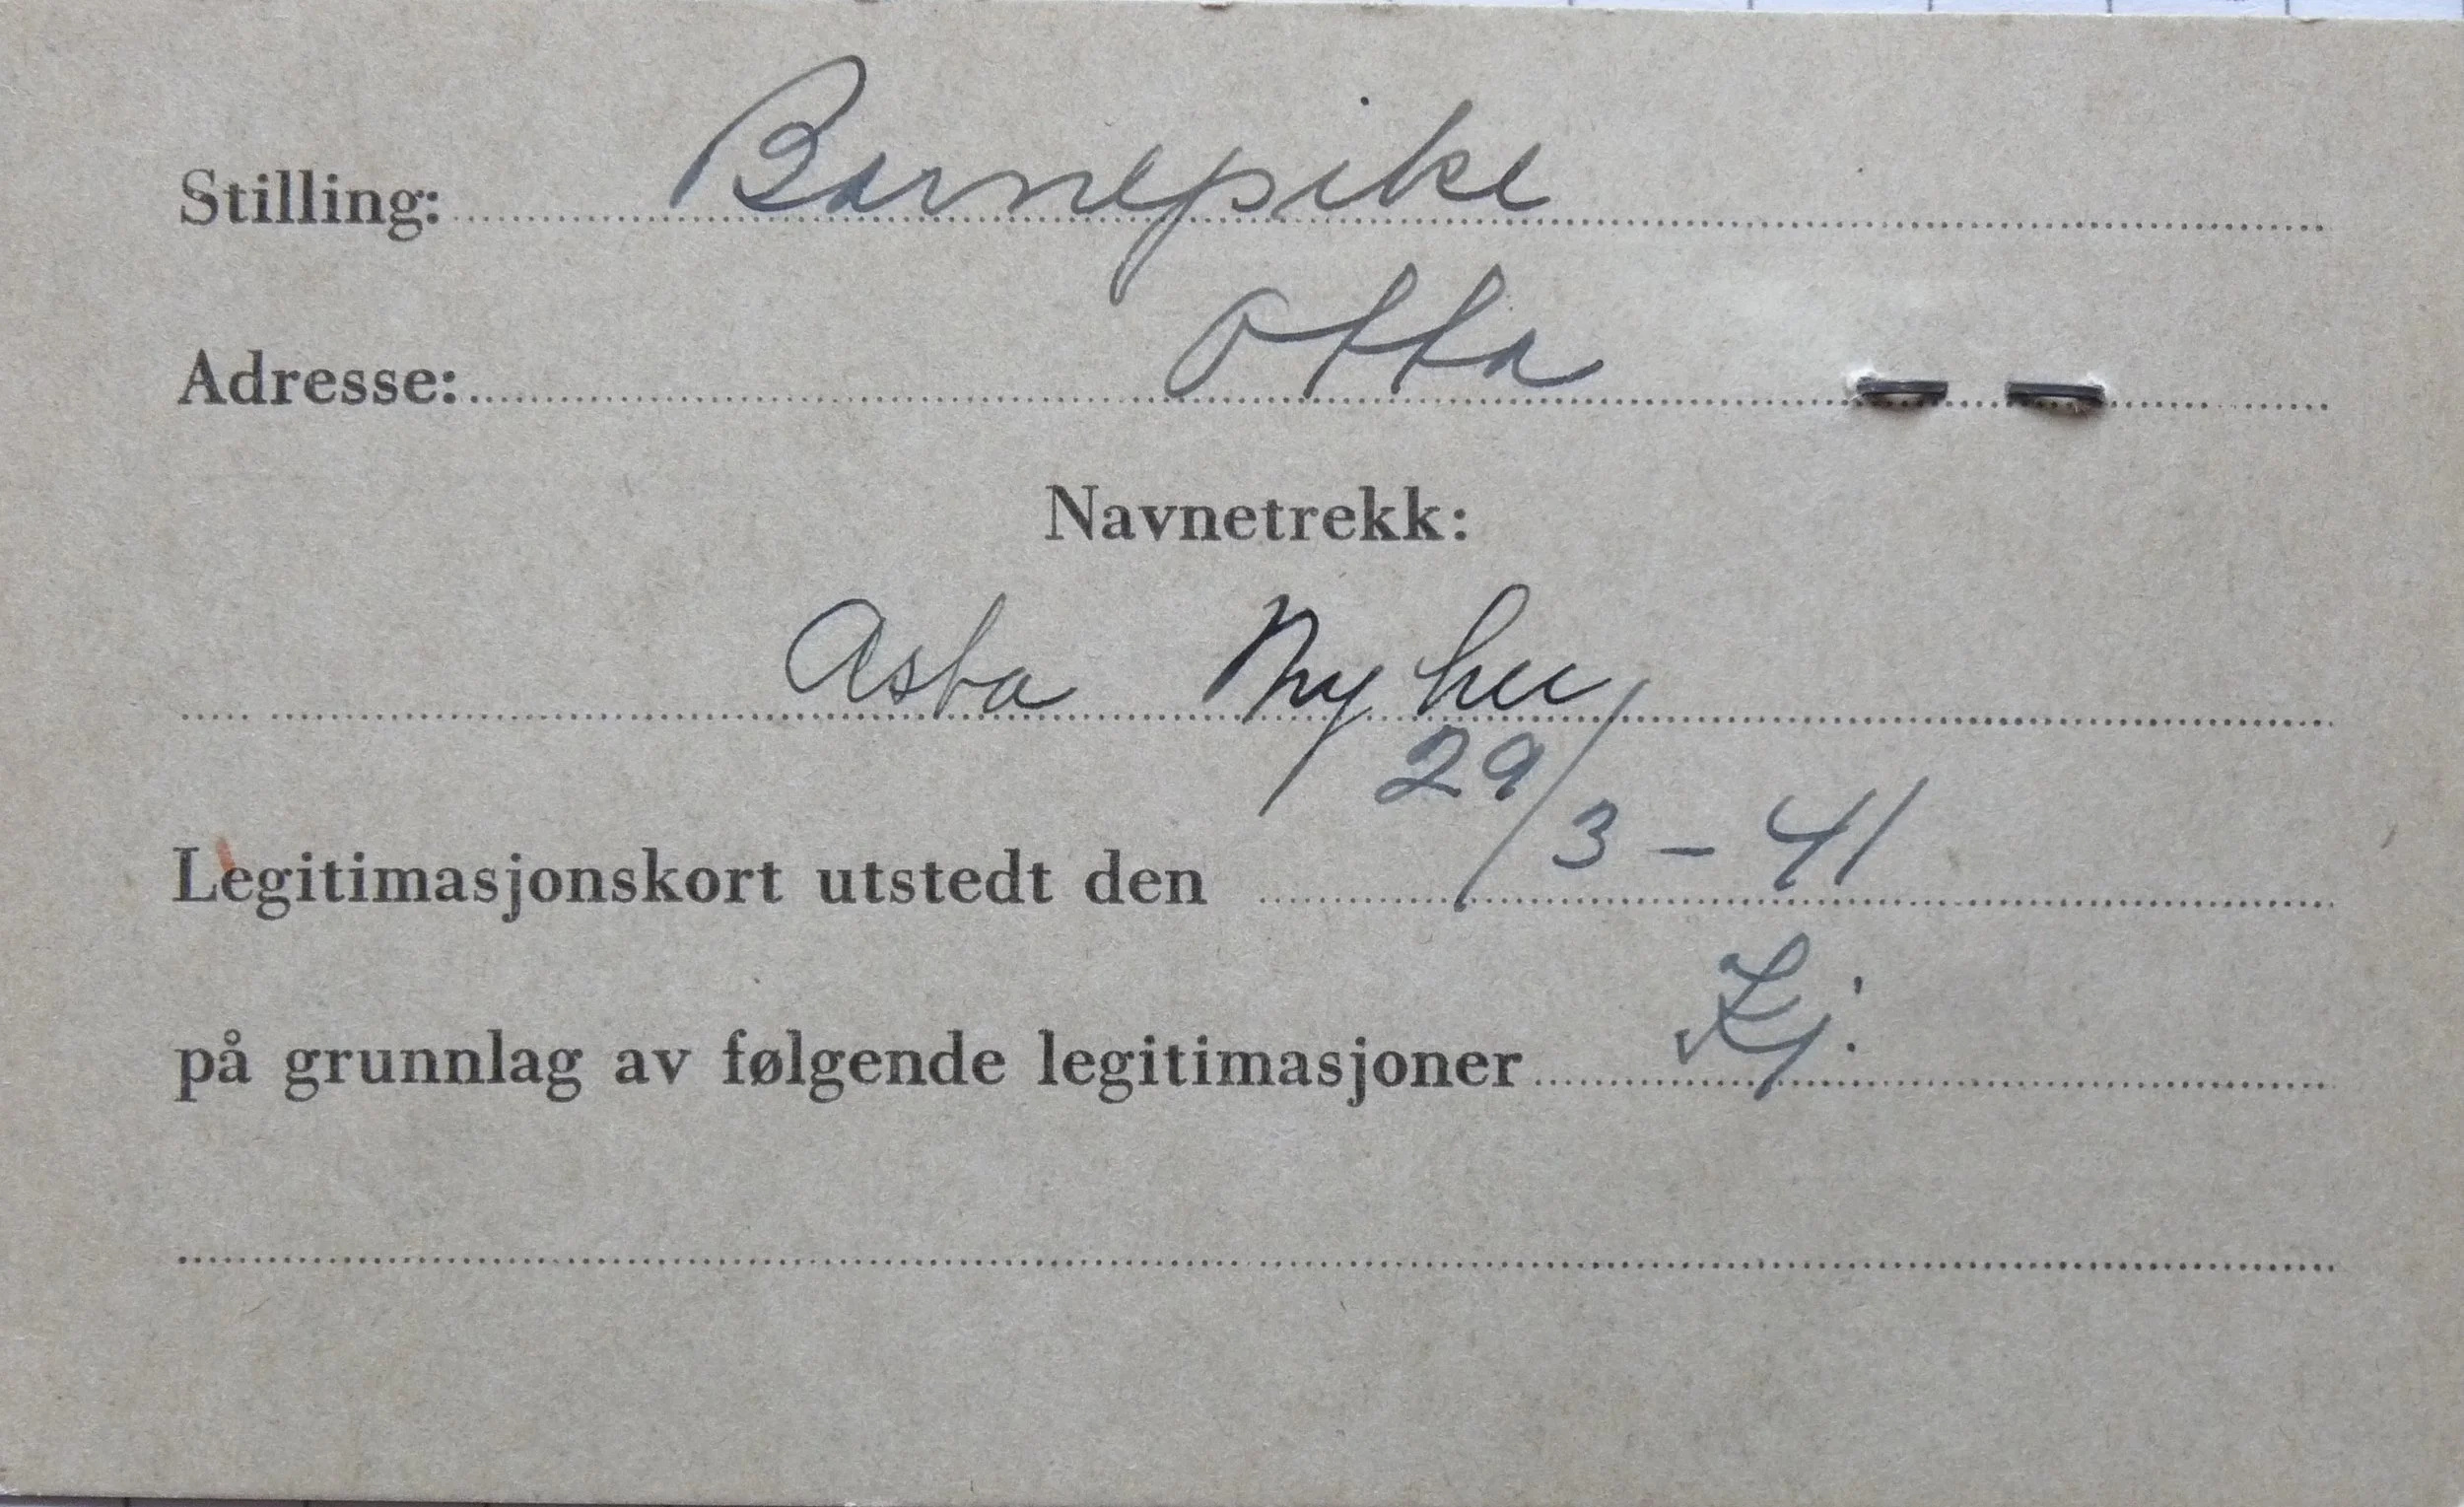 Stilling: Barnepike
Adresse: Otta
Navnetrekk:
Asta Nyhu
Legitimasjonskort utstedt den 29/3-41
på grunnlag av følgende legitimasjoner Kj.